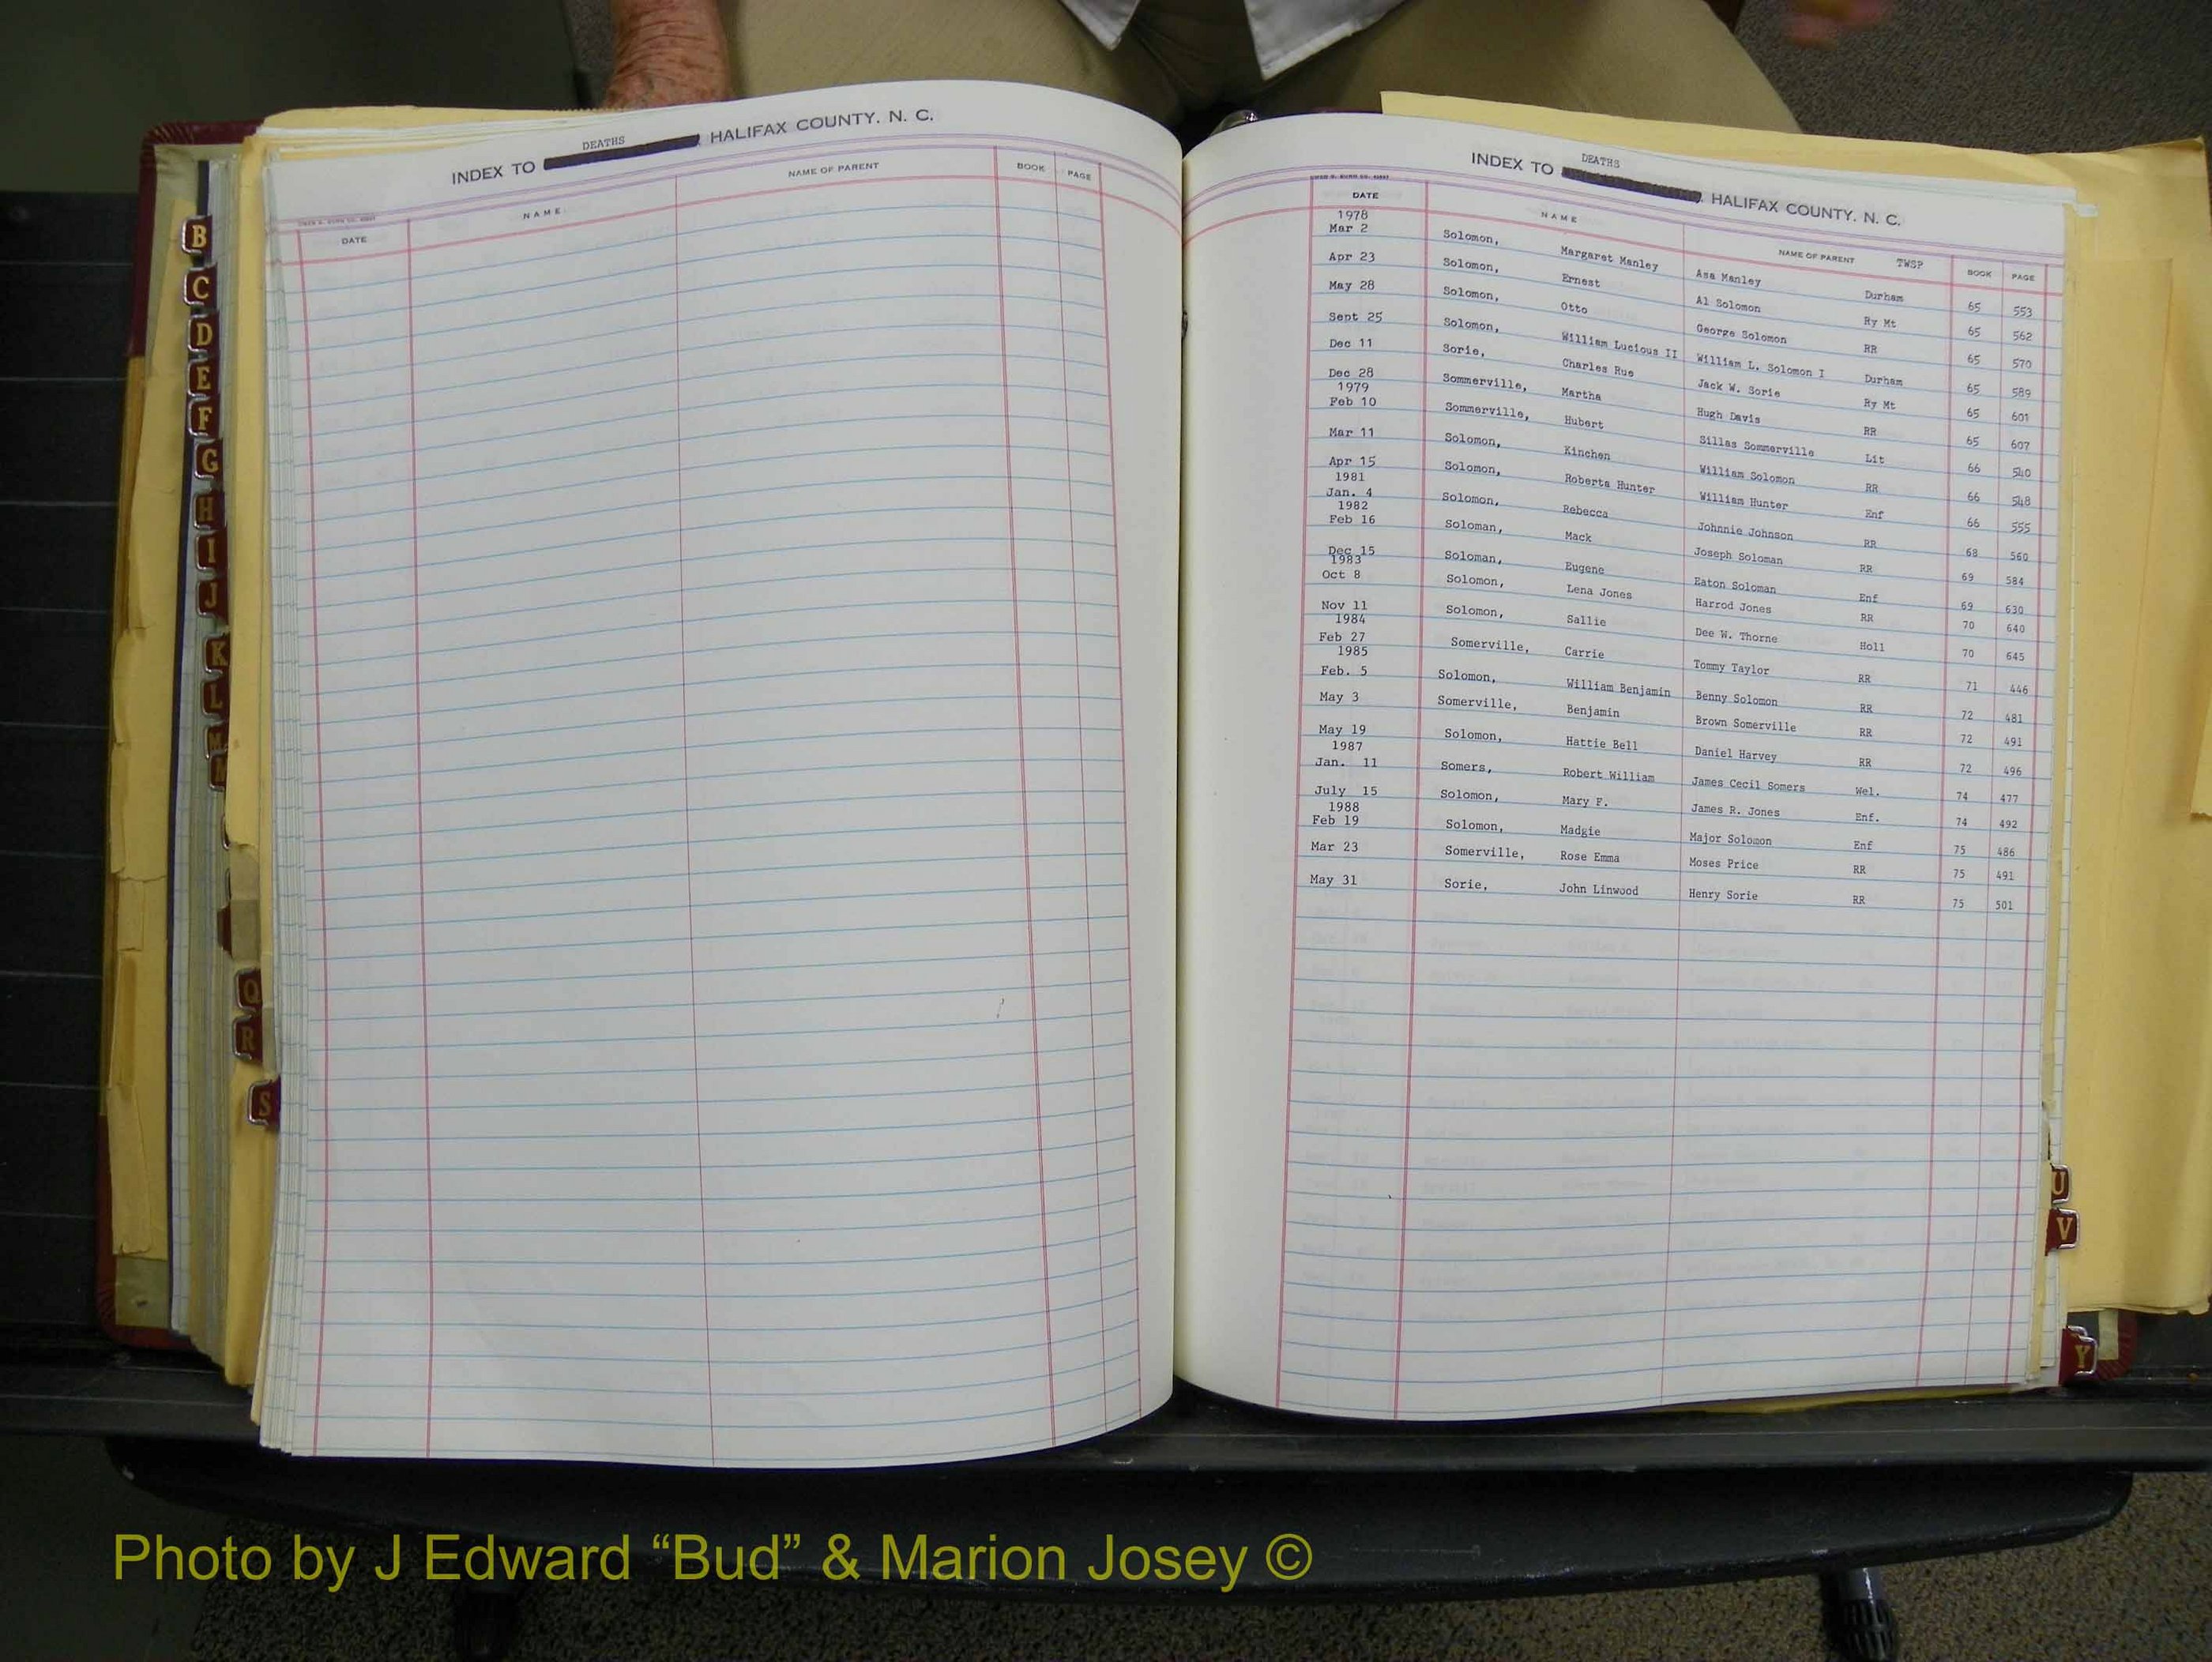 DEATHS
INDEX TO HALIFAX COUNTY, N. C.
DATE NAME NAME OF PARENT BOOK PAGE
B
C
D
E
F
G
H
I
J
K
L
M
N
Q
R
S
DEATHS
INDEX TO HALIFAX COUNTY, N. C.
DATE NAME NAME OF PARENT TWSP BOOK PAGE
1978
Mar 2 Solomon, Margaret Manley Asa Manley Durham 65 553
Apr 23 Solomon, Ernest Al Solomon Ry Mt 65 562
May 28 Solomon, Otto George Solomon RR 65 570
Sept 25 Solomon, William Lucious II William L. Solomon I Durham 65 589
Dec 11 Sorie, Charles Rue Jack W. Sorie Ry Mt 65 601
Dec 28 Sommerville, Martha Hugh Davis RR 65 607
1979
Feb 10 Sommerville, Hubert Sillas Sommerville Lit 66 540
Mar 11 Solomon, Kinchen William Solomon RR 66 548
Apr 15 Solomon, Roberta Hunter William Hunter Enf 66 555
1981
Jan. 4 Solomon, Rebecca Johnnie Johnson RR 68 560
1982
Feb 16 Soloman, Mack Joseph Soloman RR 69 584
Dec 15 Soloman, Eugene Eaton Soloman Enf 69 630
1983
Oct 8 Solomon, Lena Jones Harrod Jones RR 70 640
Nov 11 Solomon, Sallie Dee W. Thorne Holl 70 645
1984
Feb 27 Somerville, Carrie Tommy Taylor RR 71 446
1985
Feb. 5 Solomon, William Benjamin Benny Solomon RR 72 481
May 3 Somerville, Benjamin Brown Somerville RR 72 491
May 19 Solomon, Hattie Bell Daniel Harvey RR 72 496
1987
Jan. 11 Somers, Robert William James Cecil Somers Wel. 74 477
July 15 Solomon, Mary F. James R. Jones Enf. 74 492
1988
Feb 19 Solomon, Madgie Major Solomon Enf 75 486
Mar 23 Somerville, Rose Emma Moses Price RR 75 491
May 31 Sorie, John Linwood Henry Sorie RR 75 501
U
V
Y
Photo by J Edward “Bud” & Marion Josey ©